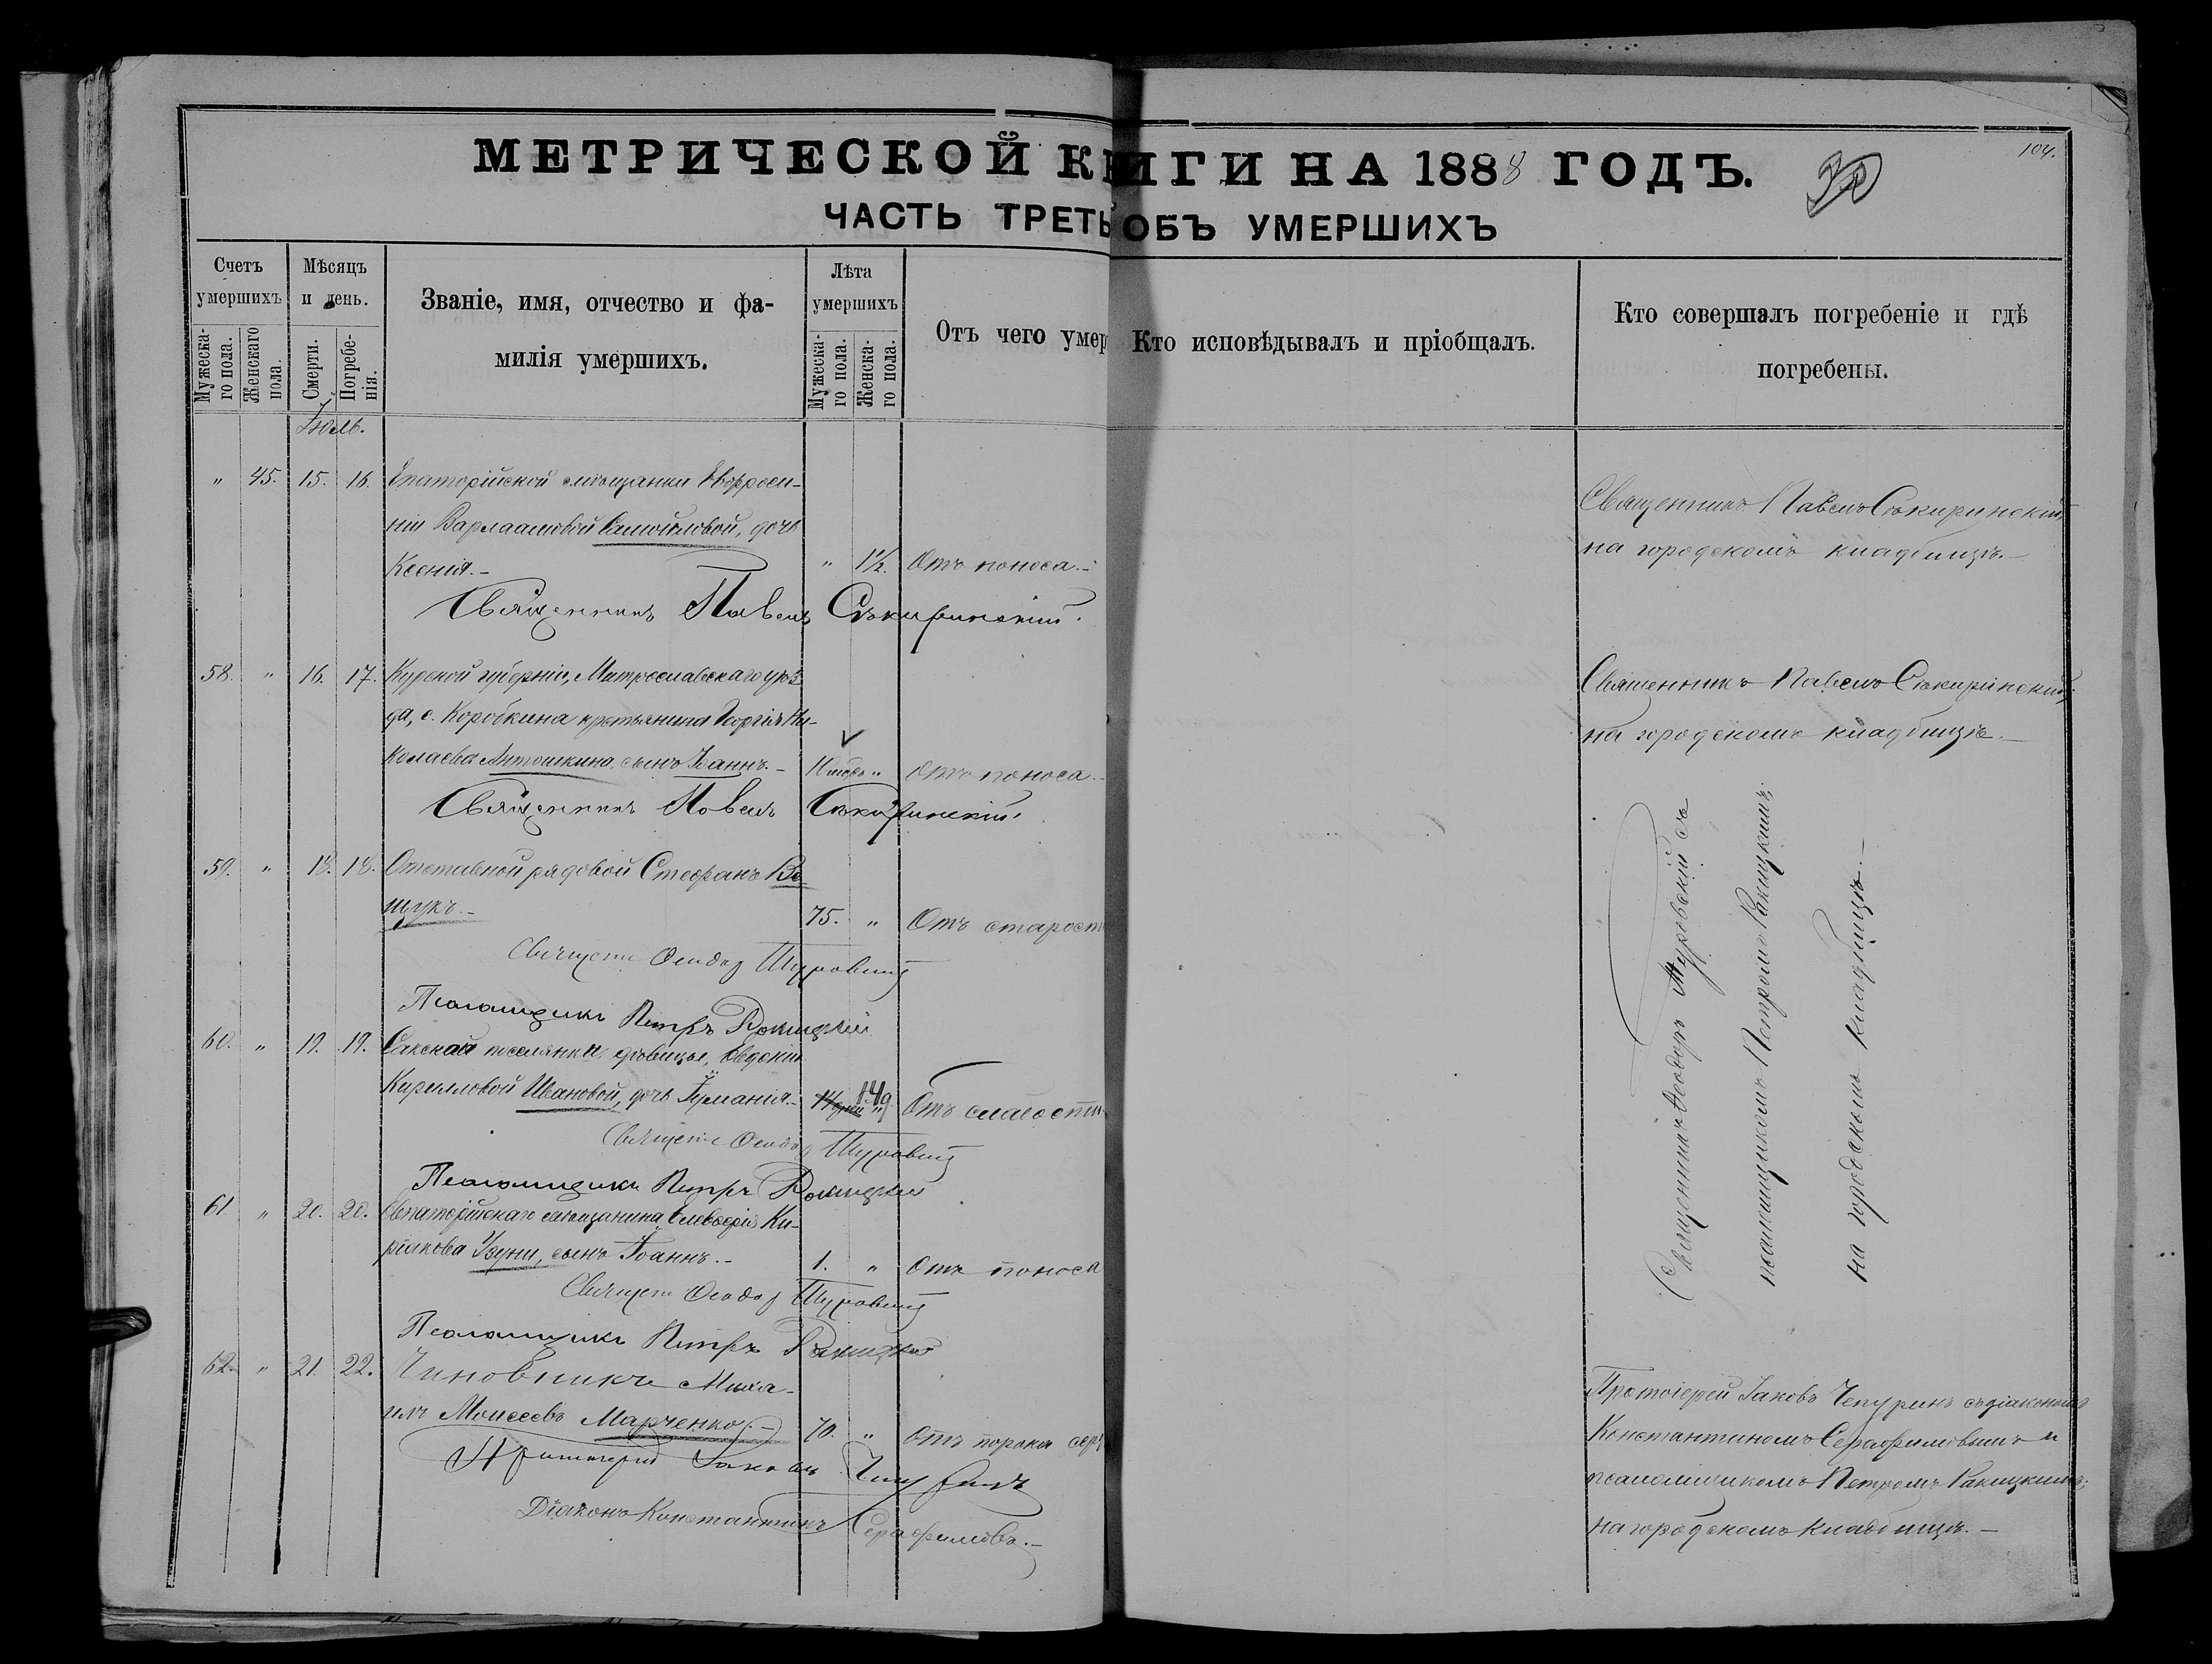 МЕТРИЧЕСКОЙ КНИГИ НА 1888 ГОДЪ.
104.
30
ЧАСТЬ ТРЕТЬ ОБЪ УМЕРШИХЪ
Счетъ умершихъ
Мужеска-го пола.
Женскаго пола.
Мѣсяцъ и день.
Смерти.
Погребе-нія.
Званіе, имя, отчество и фа-
милія умершихъ.
Лѣта умершихъ
Мужеска-го пола.
Женска-го пола.
Отъ чего умер
Кто исповѣдывалъ и пріобщалъ.
Кто совершалъ погребеніе и гдѣ
погребены.
Іюль.
" 45. 15. 16. Евпаторійской мѣщанки Евфроси-
ніи Варлаамовой Самойловой, дочь
Ксенія.- " 1½. Отъ поноса.-
Священникъ Павелъ Сѣкиринскій;
на городскомъ кладбищѣ.-
Священникъ Павелъ Сѣкиринскій.
58. " 16. 17. Курской губерніи, уѣз-
да, с. Коробкина крестьянина Георгія Ни-
колаева Антошкина, сынъ Іоаннъ.- " Отъ поноса.-
Священникъ Павелъ Сѣкиринскій;
на городскомъ кладбищѣ.-
Священникъ Павелъ Сѣкиринскій.
59. " 18. 18. Отставной рядовой Стефанъ
щукъ.- 75. " Отъ старост
Священ Ѳеодоръ
Псаломщикъ Петръ Ракицкій
60. " 19. 19. Сакской поселянки, дѣвицы, Евдокіи
Кирилловой Ивановой, дочь 14 д. Отъ слабости
Священ Ѳеодоръ
Псаломщикъ Петръ Ракицкій
61 " 20. 20. Евпаторійскаго мѣщанина Елевѳерія Ки-
ріакова Узуни, сынъ Іоаннъ.- 1. " Отъ поноса
Священ Ѳеодоръ
Псаломщикъ Петръ Ракицкій
Священникъ Ѳеодоръ съ
псаломщикомъ Петромъ Ракицкимъ;
на городскомъ кладбищѣ.-
62. " 21. 22. Чиновникъ Миха-
илъ Моисеевъ Марченко.- 70. " Отъ порока сер
Протоіерей Іаковъ Чепуринъ съ діакономъ
Константиномъ Серафимовымъ и
псаломщикомъ Петромъ Ракицкимъ;
на городскомъ кладбищѣ.-
Протоіерей Іаковъ Чепуринъ
Діаконъ Константинъ Серафимовъ.-